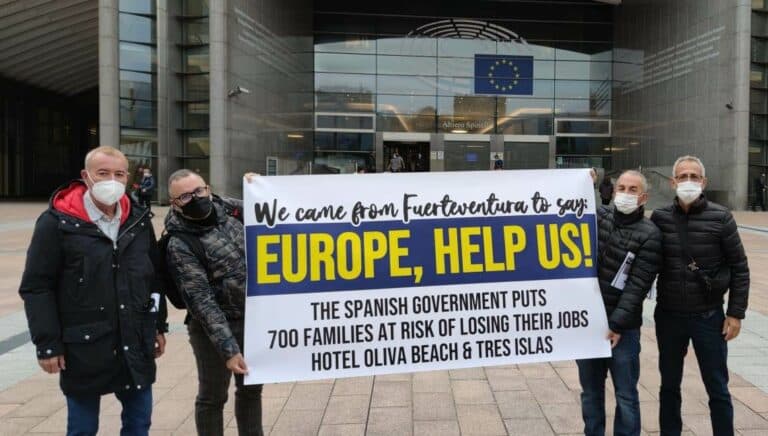 Altiero Spinelli
We came from Fuerteventura to say:
EUROPE, HELP US!
THE SPANISH GOVERNMENT PUTS
700 FAMILIES AT RISK OF LOSING THEIR JOBS
HOTEL OLIVA BEACH & TRES ISLAS